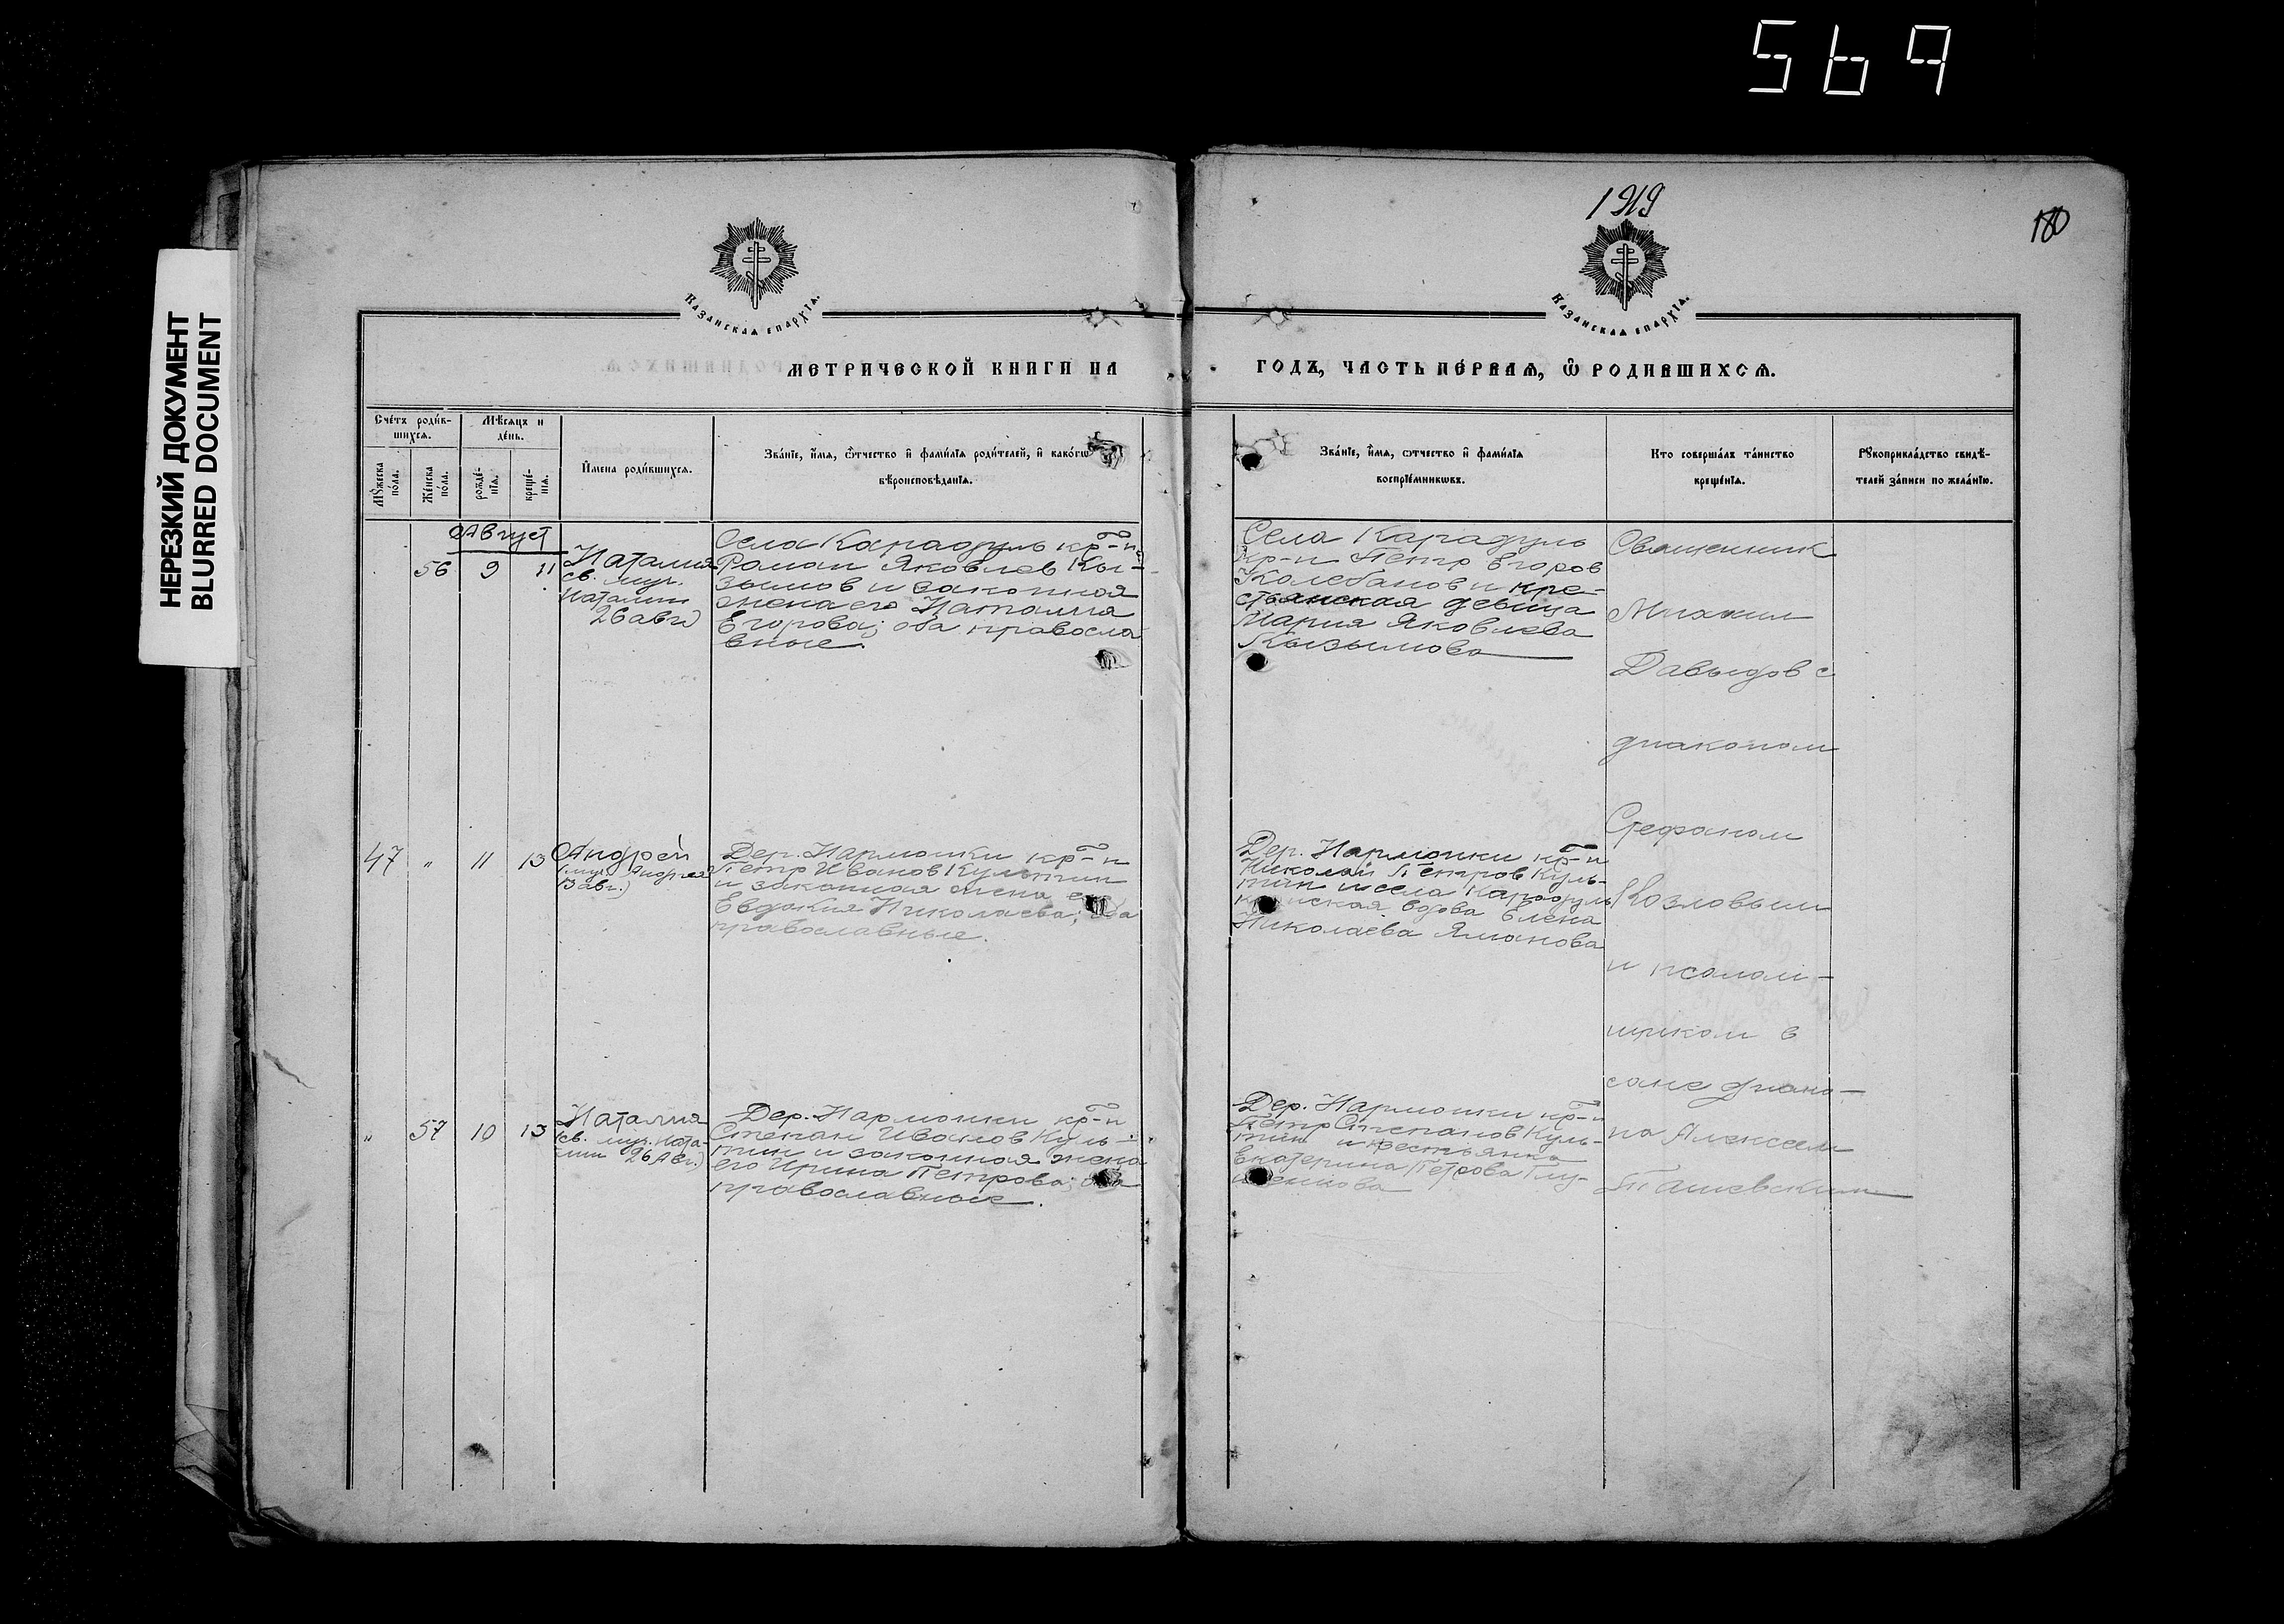 569
НЕРЕЗКИЙ ДОКУМЕНТ
BLURRED DOCUMENT
1919
180
Казанская епархїѧ.
Казанская епархїѧ.
МЕТРИЧЕСКОЙ КНИГИ НА
ГОДЪ, ЧАСТЬ ПЕ́РВАѦ, Ѿ РОДИВШИХСѦ.
Сче́тъ роди́в-
шихсѧ.
Мѣ́сѧцъ и
де́нь.
Мꙋ́жеска
по́ла.
Же́нска
по́ла.
рожде́-
нїѧ.
креще́-
нїѧ.
И҆мена роди́вшихсѧ.
Зва́нїе, и҆́мѧ, ѻ҆́тчество и҆ фами́лїѧ роди́телей, и҆ како́гѡ
вѣроисповѣ́данїѧ.
Зва́нїе, и҆́мѧ, ѻ҆́тчество и҆ фами́лїѧ
воспрїе́мникѡвъ.
Кто соверша́лъ та́инство
креще́нїѧ.
Рꙋкоприкла́дство свидѣ́-
телей за́писи по жела́нїю.
Август
56 9 11
Наталия
св. муч.
Наталии
26 авг.
Села Карадуль кр-н
Роман Яковлев Кы-
зымов и законная
жена его Наталия
Егорова; оба правосла
вные.
Села Карадуль
кр-н Петр Егоров
Колебанов и кре-
стьянская девица
Мария Яковлева
Кызымова
Священник
Михаил
Давыдов с
диаконом
Стефаном
Козловым
и псалом-
щиком в
сане диако-
на Алексеем
Ташевским
47 " 11 13
Андрей
(муч. Андрея
13 авг.)
Дер. Нармонки кр-н
Петр Иванов Культин
и законная жена
Евдокия Николаева;
православные.
Дер. Нармонки кр-н
Николай Петров Куль-
тин и села Карадуль
вдова Елена
Николаева Яманова
" 57 10 13
Наталия
(св. муч. Ната-
лии 26 Авг.)
Дер. Нармонки кр-н
Степан Иванов Куль-
тин и законная жена
его Ирина Петрова; оба
православные.
Дер. Нармонки кр-н
Петр Степанов Куль-
тин и крестьянка
Екатерина Петрова